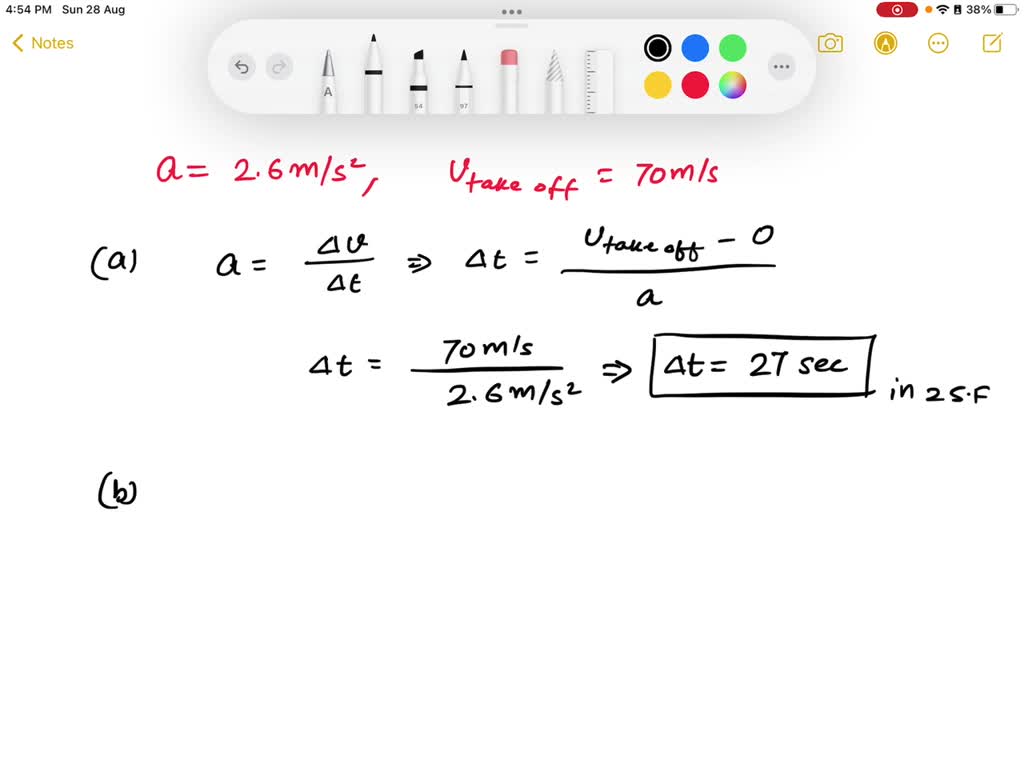 4:54 PM Sun 28 Aug
38%
Notes
A
54
97
a = 2.6 m/s², v take off = 70 m/s
(a) a = Δv/Δt ⇒ Δt = (v take off - 0)/a
Δt = 70 m/s / 2.6 m/s² ⇒ Δt = 27 sec in 2 S.F
(b)